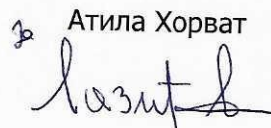 За Атила Хорват